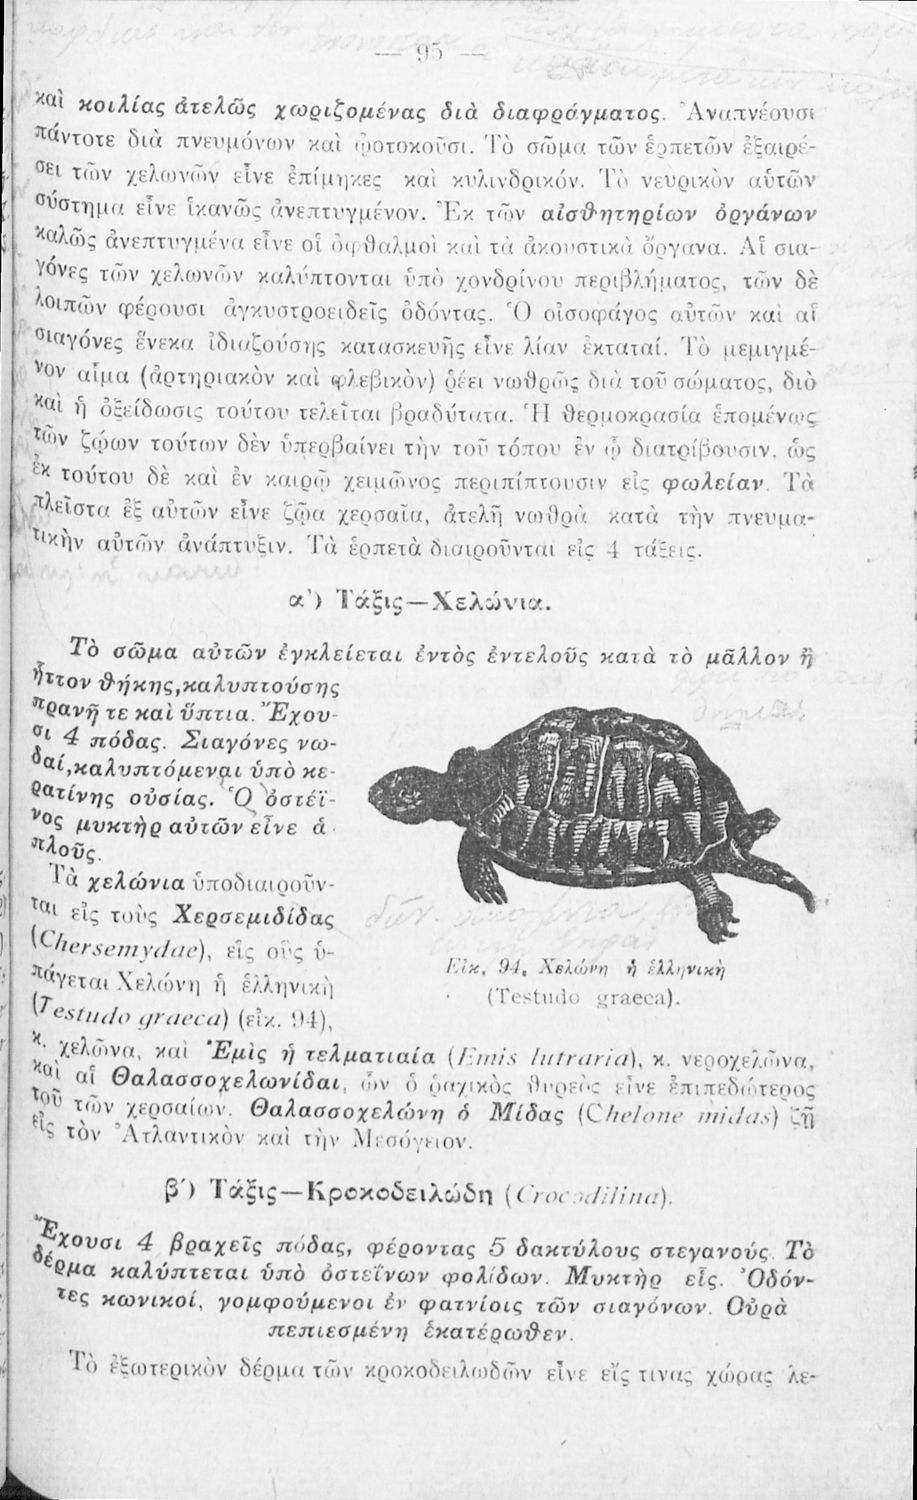 — 95 —
καὶ κοιλίας ἀτελῶς χωριζομένας διὰ διαφράγματος. Ἀναπνέουσι
πάντοτε διὰ πνευμόνων καὶ ᾠοτοκοῦσι. Τὸ σῶμα τῶν ἑρπετῶν ἐξαιρέ-
σει τῶν χελωνῶν εἶνε ἐπίμηκες καὶ κυλινδρικόν. Τὸ νευρικὸν αὐτῶν
σύστημα εἶνε ἱκανῶς ἀνεπτυγμένον. Ἐκ τῶν αἰσθητηρίων ὀργάνων
καλῶς ἀνεπτυγμένα εἶνε οἱ ὀφθαλμοὶ καὶ τὰ ἀκουστικὰ ὄργανα. Αἱ σια-
γόνες τῶν χελωνῶν καλύπτονται ὑπὸ χονδρίνου περιβλήματος, τῶν δὲ
λοιπῶν φέρουσι ἀγκυστροειδεῖς ὀδόντας. Ὁ οἰσοφάγος αὐτῶν καὶ αἱ
σιαγόνες ἕνεκα ἰδιαζούσης κατασκευῆς εἶνε λίαν ἐκταταί. Τὸ μεμιγμέ-
νον αἷμα (ἀρτηριακὸν καὶ φλεβικὸν) ῥέει νωθρῶς διὰ τοῦ σώματος, διὸ
καὶ ἡ ὀξείδωσις τούτου τελεῖται βραδύτατα. Ἡ θερμοκρασία ἑπομένως
τῶν ζῴων τούτων δὲν ὑπερβαίνει τὴν τοῦ τόπου ἐν ᾧ διατρίβουσιν, ὡς
ἐκ τούτου δὲ καὶ ἐν καιρῷ χειμῶνος περιπίπτουσιν εἰς φωλείαν. Τὰ
πλεῖστα ἐξ αὐτῶν εἶνε ζῷα χερσαῖα, ἀτελῆ νωθρὰ κατὰ τὴν πνευμα-
τικὴν αὐτῶν ἀνάπτυξιν. Τὰ ἑρπετὰ διαιροῦνται εἰς 4 τάξεις.
α') Τάξις—Χελώνια.
Τὸ σῶμα αὐτῶν ἐγκλείεται ἐντὸς ἐντελοῦς κατὰ τὸ μᾶλλον ἢ
ἧττον θήκης, καλυπτούσης
πρανῆ τε καὶ ὕπτια. Ἔχου-
σι 4 πόδας. Σιαγόνες νω-
δαί, καλυπτόμεναι ὑπὸ κε-
ρατίνης οὐσίας. Ὁ ὀστέϊ-
νος μυκτὴρ αὐτῶν εἶνε ἁ-
πλοῦς.
Τὰ χελώνια ὑποδιαιροῦν-
ται εἰς τοὺς Χερσεμιδίδας
(Chersemydae), εἰς οὓς ὑ-
πάγεται Χελώνη ἡ ἑλληνικὴ
(Testudo graeca) (εἰκ. 94),
κ. χελῶνα, καὶ Ἐμὶς ἡ τελματιαία (Emis lutraria), κ. νεροχελῶνα,
καὶ αἱ Θαλασσοχελωνίδαι, ὧν ὁ ῥαχικὸς θυρεὸς εἶνε ἐπιπεδώτερος
τοῦ τῶν χερσαίων. Θαλασσοχελώνη ὁ Μίδας (Chelone midas) ζῇ
εἰς τὸν Ἀτλαντικὸν καὶ τὴν Μεσόγειον.
Εἰκ. 94. Χελώνη ἡ ἑλληνικὴ
(Testudo graeca).
β') Τάξις—Κροκοδειλώδη (Crocodilina).
Ἔχουσι 4 βραχεῖς πόδας, φέροντας 5 δακτύλους στεγανούς. Τὸ
δέρμα καλύπτεται ὑπὸ ὀστεΐνων φολίδων. Μυκτὴρ εἷς. Ὀδόν-
τες κωνικοί, γομφούμενοι ἐν φατνίοις τῶν σιαγόνων. Οὐρὰ
πεπιεσμένη ἑκατέρωθεν.
Τὸ ἐξωτερικὸν δέρμα τῶν κροκοδειλωδῶν εἶνε εἴς τινας χώρας λε-